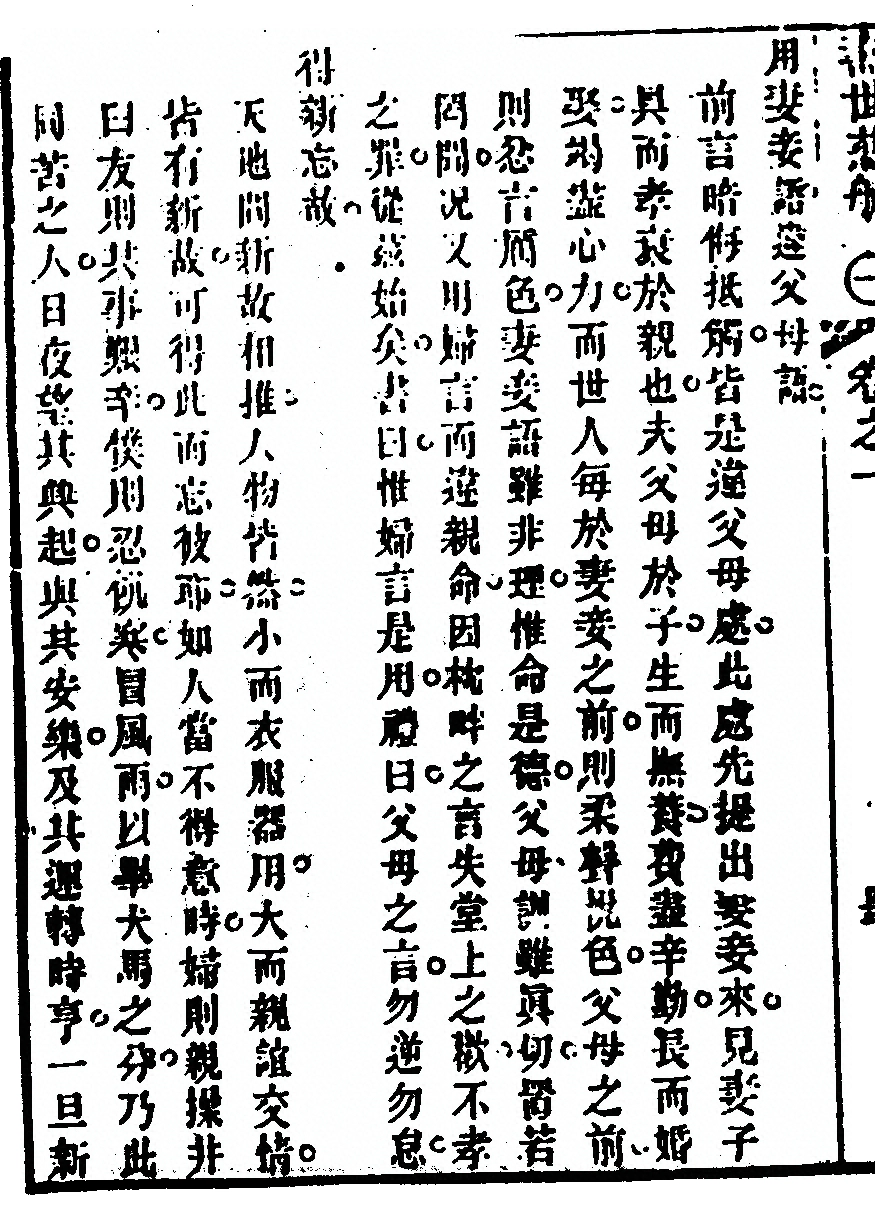 世慈航 卷之一
用妻妾語違父母語
前言暗侮抵觸皆是違父母處此處先提出妻妾來見妻子
具而孝衰於親也夫父母於子生而撫養費盡辛勤長而婚
娶竭盡心力而世人每於妻妾之前則柔聲悅色父母之前
則忍言厲色妻妾語雖非理惟命是德父母訓雖真切嘗若
罔聞況又用婦言而違親命因枕畔之言失堂上之歡不孝
之罪從茲始矣書曰惟婦言是用禮曰父母之言勿逆勿怠
得新忘故
天地間新故相推人物皆然小而衣服器用大而親誼交情
皆有新故可得此而忘彼耶如人當不得意時婦則親操井
臼友則共事艱辛僕則忍飢寒冒風雨以畢犬馬之分乃此
同苦之人日夜望其興起與其安樂及其運轉時亨一旦新